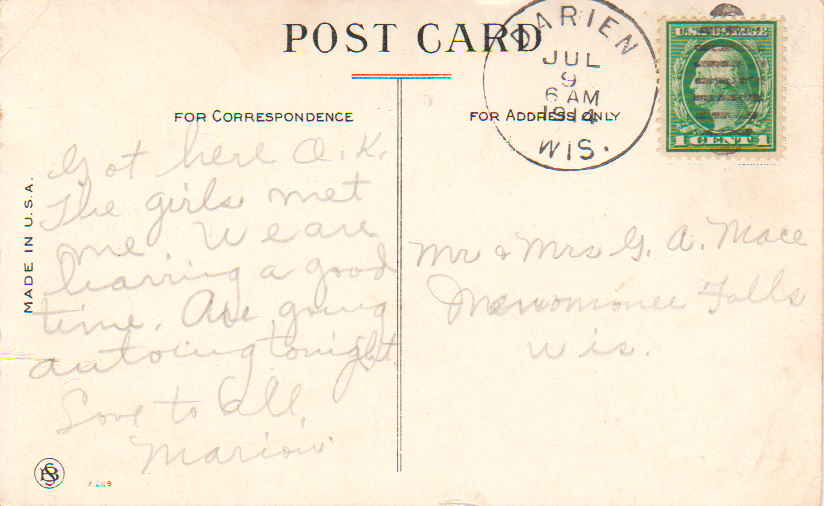 POST CARD
FOR CORRESPONDENCE
FOR ADDRESS ONLY
DARIEN
JUL
9
6 AM
1914
WIS.
1 CENT 1
MADE IN U.S.A.
Got here O.K.
The girls met
me We are
having a good
time. Are going
autoing tonight.
Love to all,
Marion
Mr & Mrs G. A. Mace
Menomonee Falls
Wis.